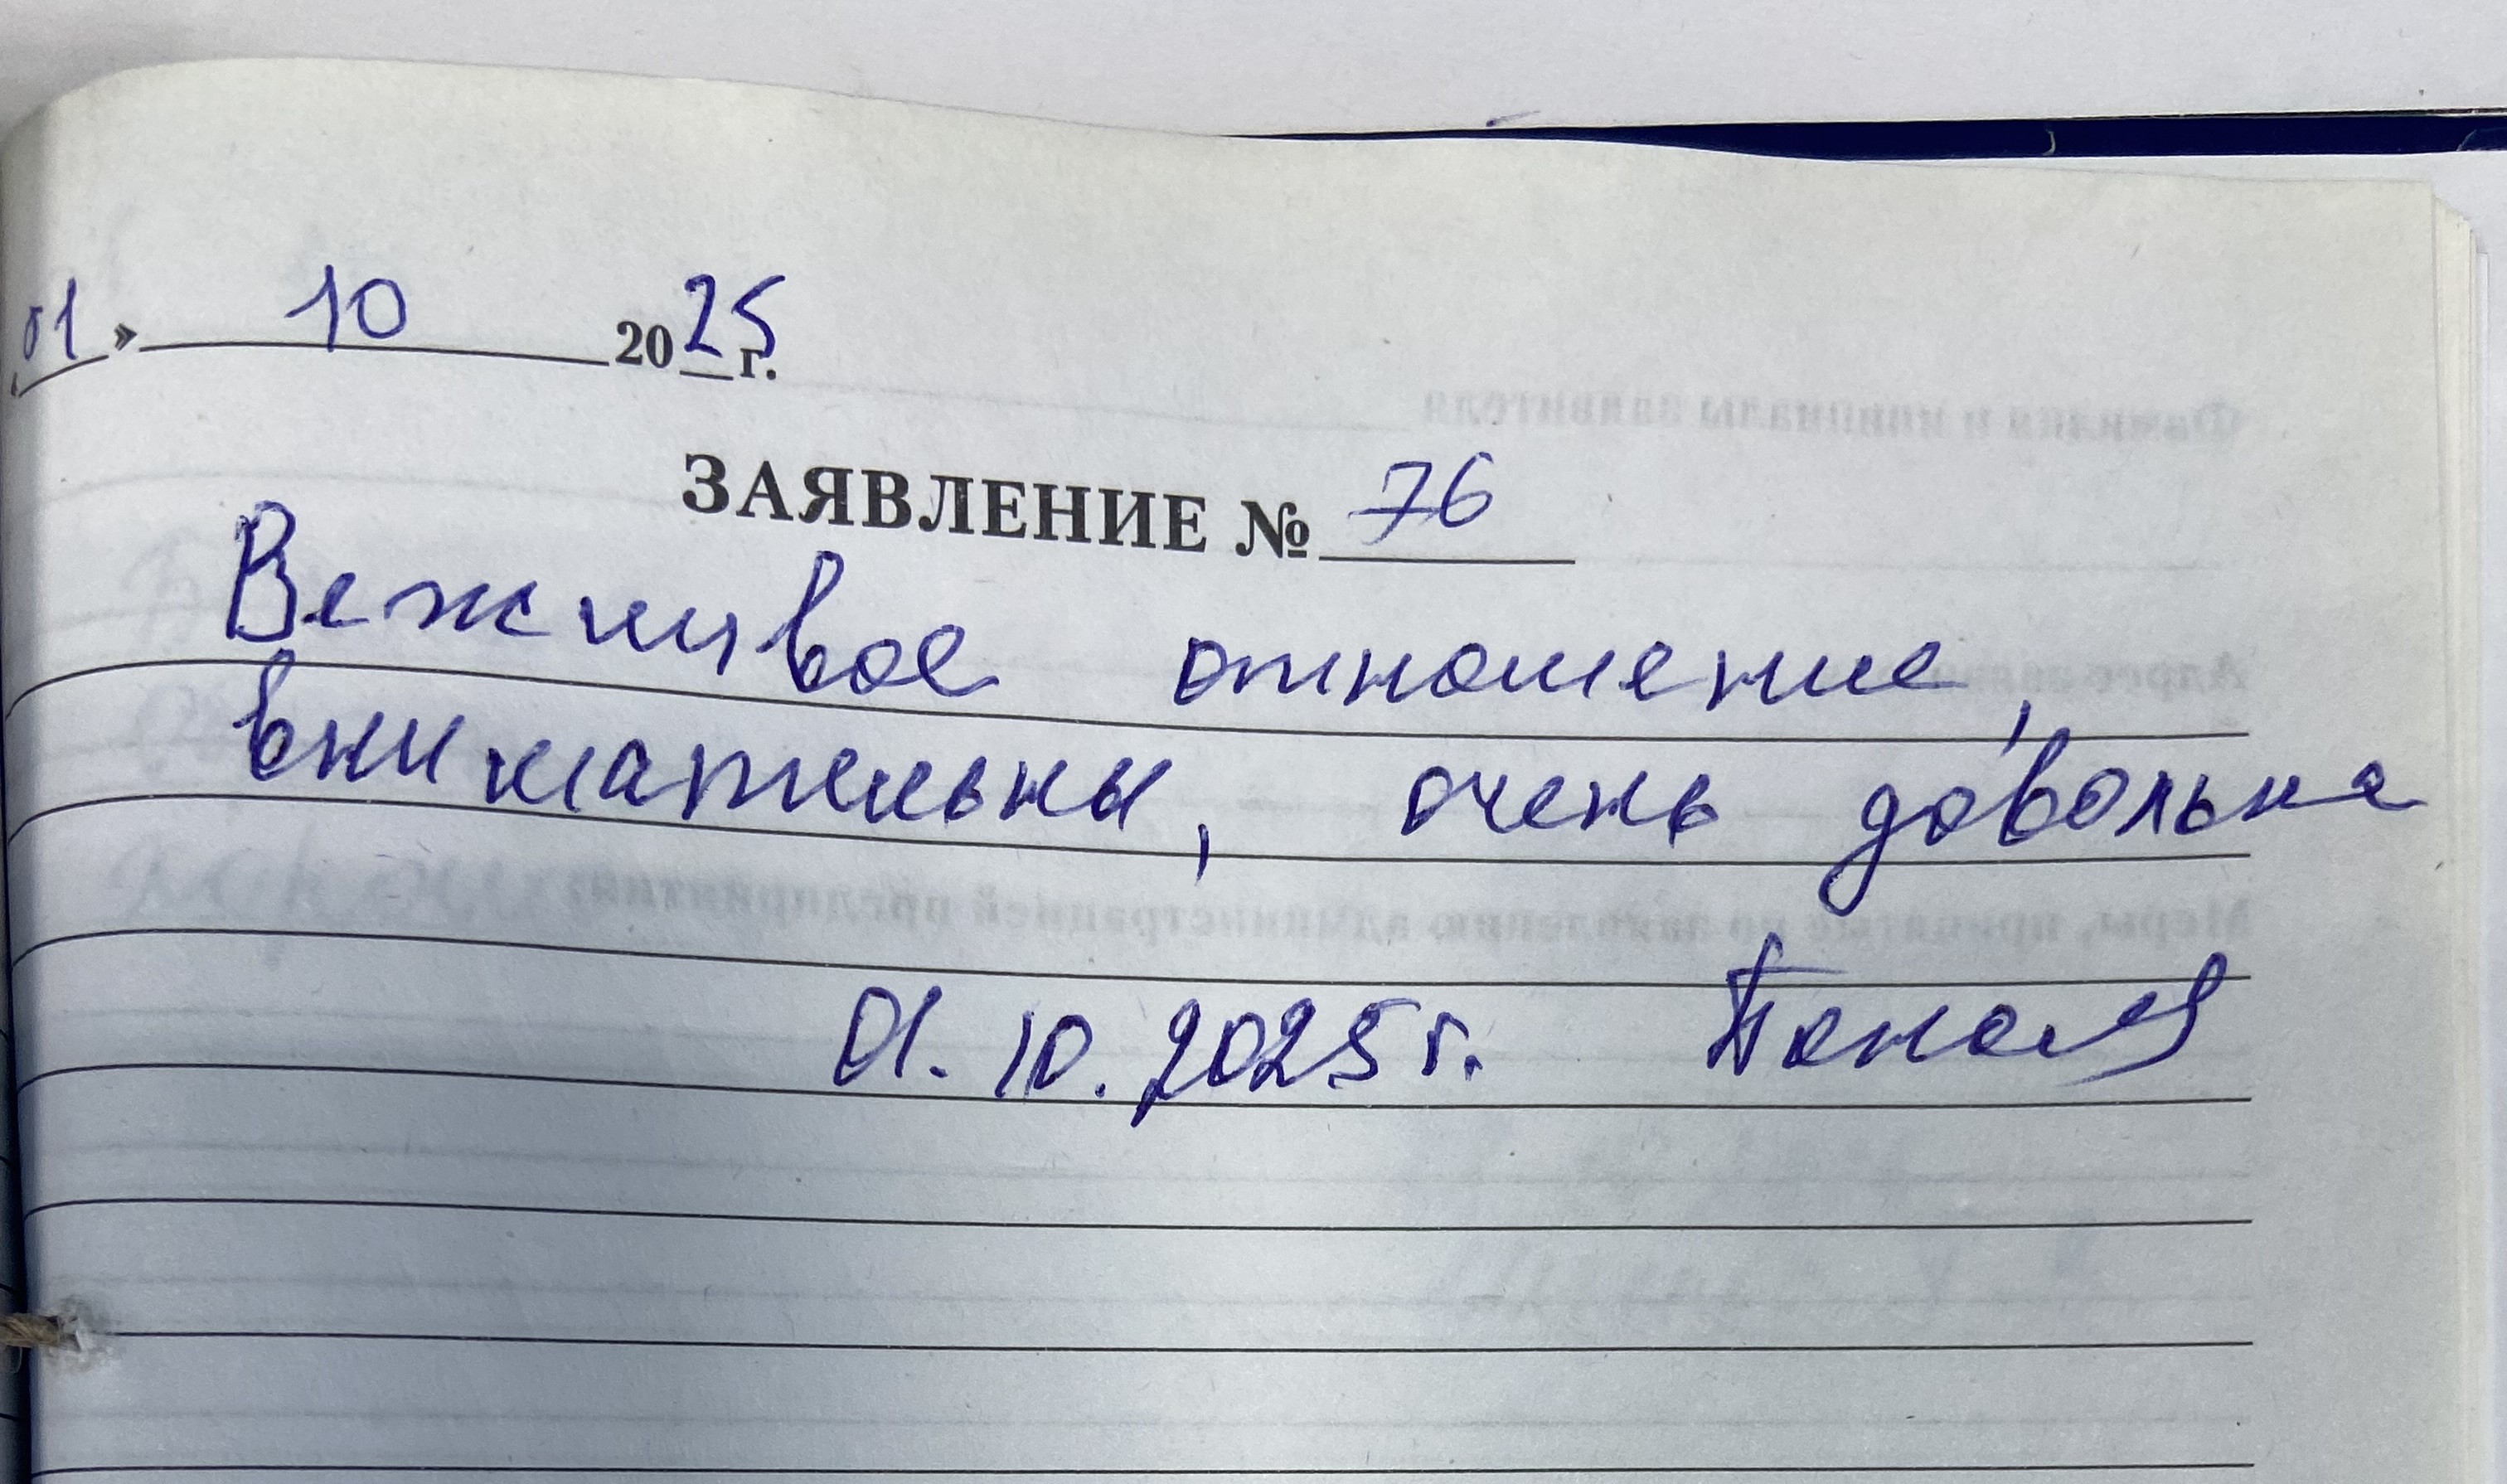 01 » 10 2025 г.
ЗАЯВЛЕНИЕ № 76
Вежливое отношение,
внимательны, очень довольна
01.10.2025 г.